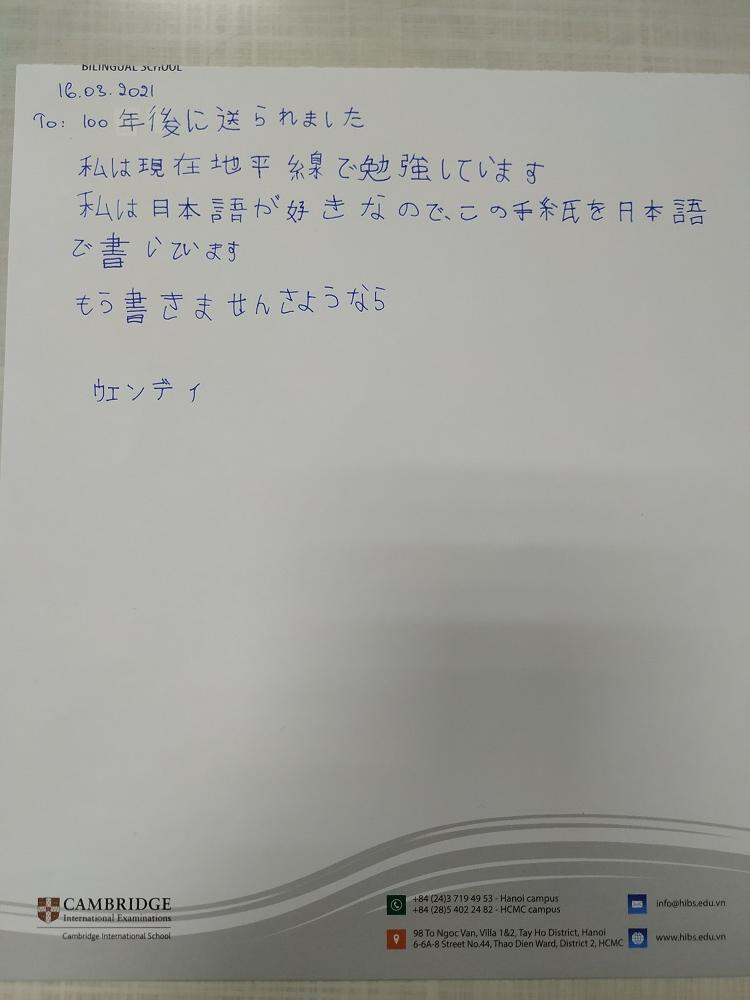 BILINGUAL SCHOOL
16.03.2021
To: 100 年後に送られました
私は現在地平線で勉強しています
私は日本語が好きなので、この手紙を日本語
で書いています
もう書きませんさようなら
ウェンディ
CAMBRIDGE
International Examinations
Cambridge International School
+84 (24)3 719 49 53 - Hanoi campus
+84 (28)5 402 24 82 - HCMC campus
98 To Ngoc Van, Villa 1&2, Tay Ho District, Hanoi
6-6A-8 Street No.44, Thao Dien Ward, District 2, HCMC
info@hibs.edu.vn
www.hibs.edu.vn